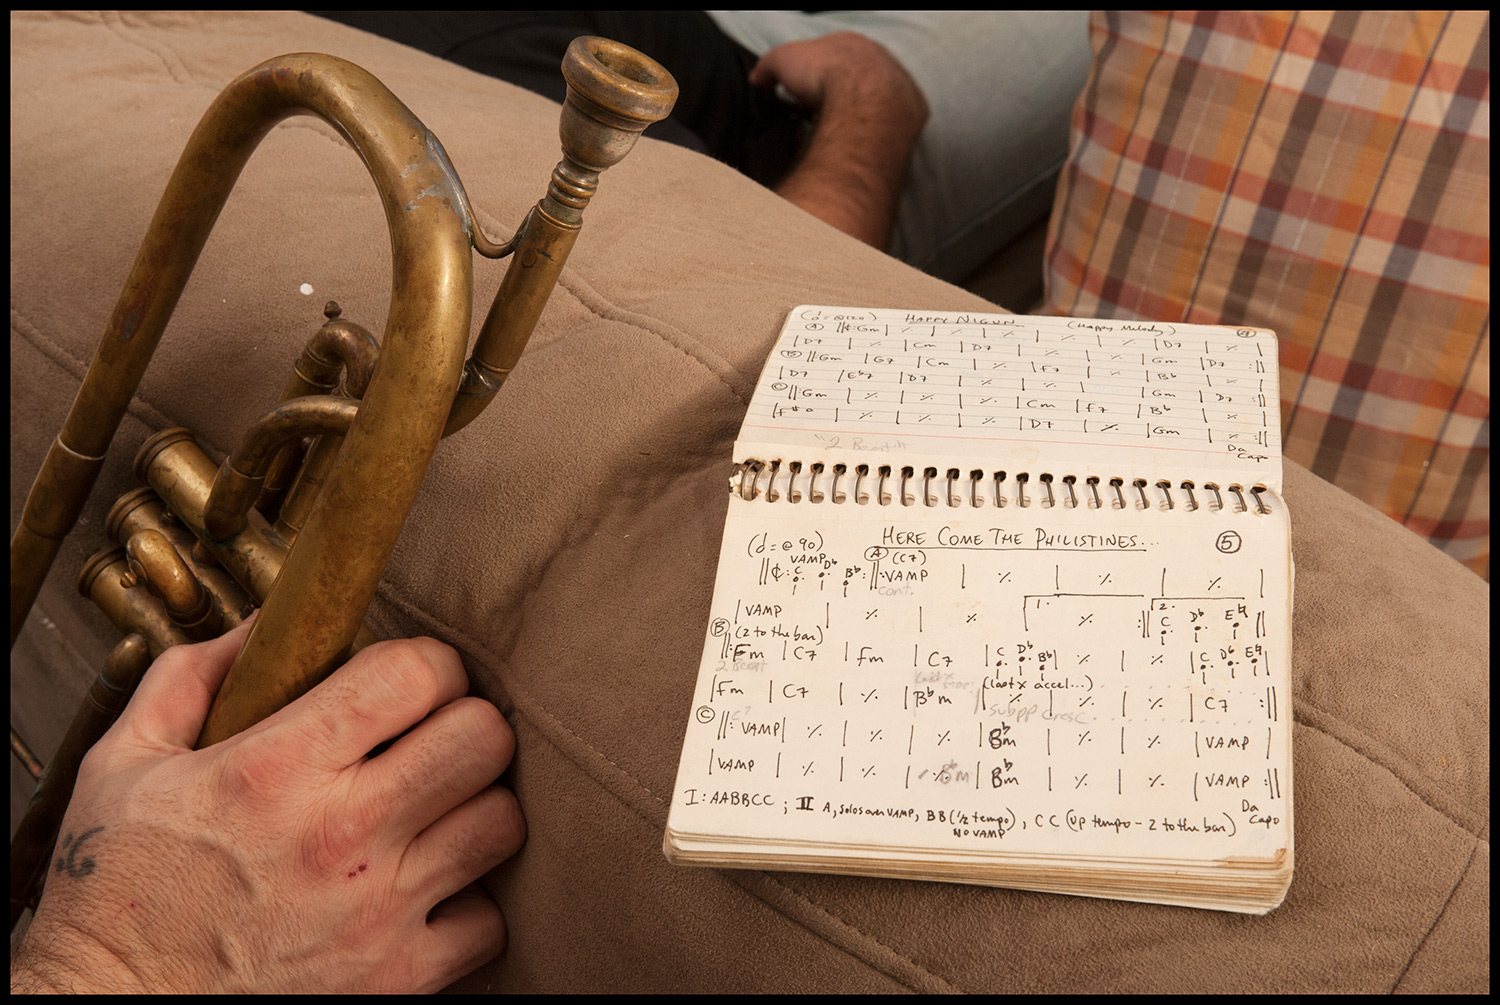 (d = @ 120) HAPPY NIGUN (Happy Melody) 4
A ||¢: Gm | ٪ | ٪ | ٪ | ٪ | ٪ | ٪
| D7 | ٪ | Cm | D7 | ٪ | ٪ | D7 | ٪ |
B ||: Gm | G7 | Cm | ٪ | F7 | ٪ | Gm | D7 :||
| D7 | E♭7 | D7 | ٪ | ٪ | | B♭ | ٪ |
C ||: Gm | ٪ | ٪ | ٪ | Cm | F7 | Gm | D7 :||
| F#o | ٪ | ٪ | ٪ | D7 | ٪ | B♭ | ٪ |
Gm | ٪ :||
"2 Beat" Da Capo
HERE COME THE PHILISTINES... 5
(d = @ 90) A (C7)
VAMP
||¢: C D♭ B♭ :||: VAMP | ٪ | ٪ | ٪ |
cont.
| VAMP | ٪ | ٪ | 1. ٪ :|| 2. C D♭ E♮ ||
B (2 to the bar)
||: Fm | C7 | Fm | C7 | C D♭ B♭ | ٪ | ٪ | C D♭ E♮ |
2 Beat
(last x accel...)
| Fm | C7 | ٪ | B♭m | ٪ | ٪ | ٪ | C7 :||
subpp cresc.
C ||: VAMP | ٪ | ٪ | ٪ | B♭m | ٪ | ٪ | VAMP |
| VAMP | ٪ | ٪ | ٪ B♭m | B♭m | ٪ | ٪ | VAMP :||
I: AABBCC ; II A, solos over VAMP, BB (1/2 tempo), CC (up tempo - 2 to the bar) Da Capo
NO VAMP